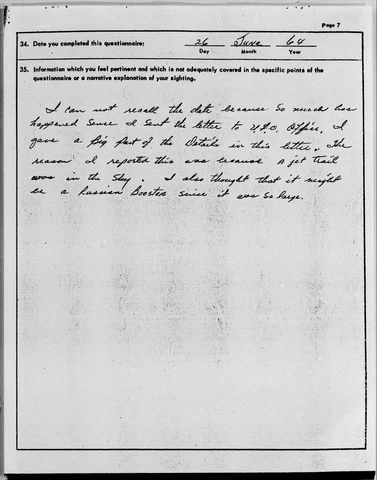 Page 7
34. Date you completed this questionnaire: 26 June 64
Day Month Year
35. Information which you feel pertinent and which is not adequately covered in the specific points of the
questionnaire or a narrative explanation of your sighting.
I can not recall the date because so much has
happened sense I sent the letter to U.F.O. Office. I
gave a big part of the Details in this letter. The
reason I reported this was because a jet trail
was in the sky. I also thought that it might
be a Russian Booster since it was so large.